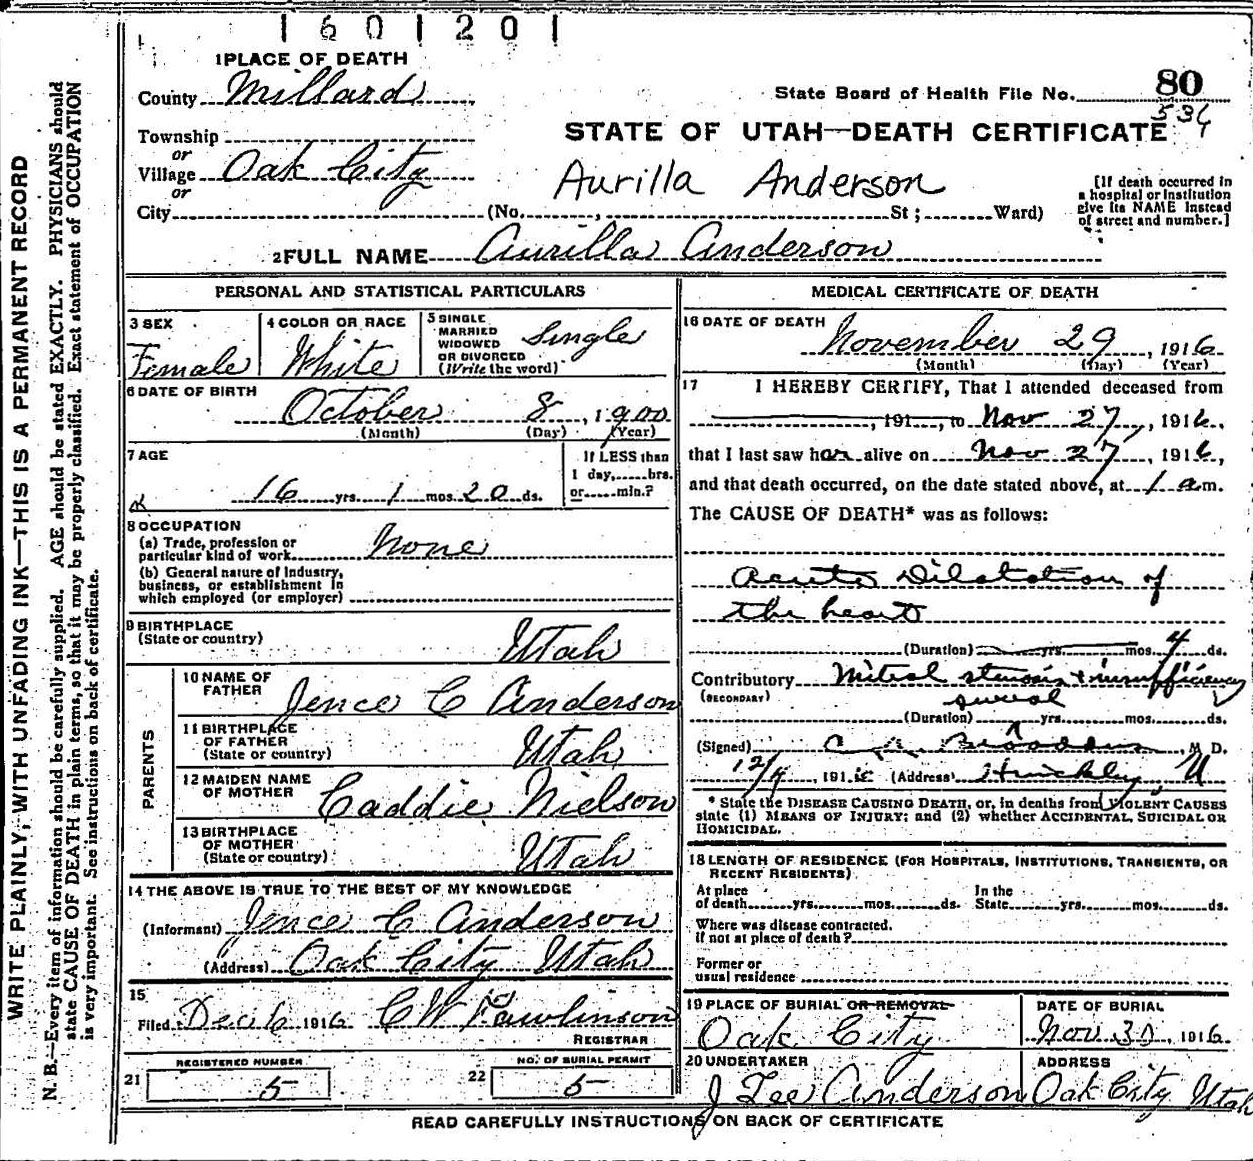 1601201
1 PLACE OF DEATH
County Millard
State Board of Health File No. 80
534
Township
or
Village Oak City
or
City (No. , St ; Ward)
STATE OF UTAH—DEATH CERTIFICATE
Aurilla Anderson
[If death occurred in
a hospital or institution
give its NAME instead
of street and number.]
2 FULL NAME Aurilla Anderson
PERSONAL AND STATISTICAL PARTICULARS
3 SEX
Female
4 COLOR OR RACE
White
5 SINGLE
MARRIED
WIDOWED
OR DIVORCED
(Write the word)
Single
6 DATE OF BIRTH
October 8, 1900
(Month) (Day) (Year)
7 AGE
16 yrs. 1 mos. 20 ds.
If LESS than
1 day, hrs.
or min.?
8 OCCUPATION
(a) Trade, profession or
particular kind of work None
(b) General nature of industry,
business, or establishment in
which employed (or employer)
9 BIRTHPLACE
(State or country) Utah
PARENTS
10 NAME OF
FATHER Jence C Anderson
11 BIRTHPLACE
OF FATHER
(State or country) Utah
12 MAIDEN NAME
OF MOTHER Caddie Nielson
13 BIRTHPLACE
OF MOTHER
(State or country) Utah
14 THE ABOVE IS TRUE TO THE BEST OF MY KNOWLEDGE
(Informant) Jence C Anderson
(Address) Oak City Utah
15
Filed Dec 6 1916 C W Rawlinson
REGISTRAR
REGISTERED NUMBER
21 5
NO. OF BURIAL PERMIT
22 5
MEDICAL CERTIFICATE OF DEATH
16 DATE OF DEATH
November 29, 1916
(Month) (Day) (Year)
17 I HEREBY CERTIFY, That I attended deceased from
, 191 , to Nov 27, 1916,
that I last saw her alive on Nov 27, 1916,
and that death occurred, on the date stated above, at 1 am.
The CAUSE OF DEATH* was as follows:
Acute Dilatation of
the heart
(Duration) yrs. mos. 4 ds.
Contributory Mitral stenosis + insufficiency
(SECONDARY)
several
(Duration) yrs. mos. ds.
(Signed) C. A. Broaddus, M D.
12/4 1916 (Address) Hinckley, U
* State the DISEASE CAUSING DEATH, or, in deaths from VIOLENT CAUSES
state (1) MEANS OF INJURY; and (2) whether ACCIDENTAL, SUICIDAL OR
HOMICIDAL.
18 LENGTH OF RESIDENCE (FOR HOSPITALS, INSTITUTIONS, TRANSIENTS, OR
RECENT RESIDENTS)
At place
of death yrs. mos. ds.
In the
State yrs. mos. ds.
Where was disease contracted.
if not at place of death?
Former or
usual residence
19 PLACE OF BURIAL OR REMOVAL
Oak City
DATE OF BURIAL
Nov 30, 1916
20 UNDERTAKER
J Lee Anderson
ADDRESS
Oak City Utah
READ CAREFULLY INSTRUCTIONS ON BACK OF CERTIFICATE
WRITE PLAINLY, WITH UNFADING INK—THIS IS A PERMANENT RECORD
N. B.—Every item of information should be carefully supplied. AGE should be stated EXACTLY. PHYSICIANS should
state CAUSE OF DEATH in plain terms, so that it may be properly classified. Exact statement of OCCUPATION
is very important. See instructions on back of certificate.